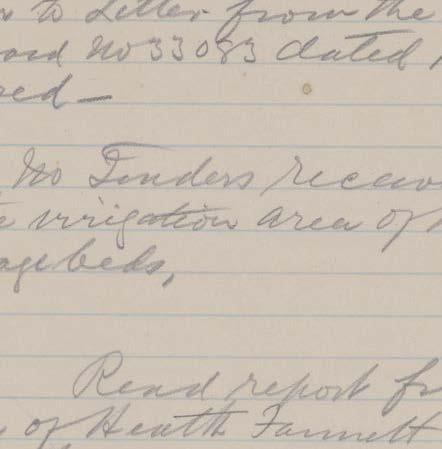 to Letter from the
No 33083 dated
No Tenders
irrigation area of
beds,
Read report
of Health Fannett